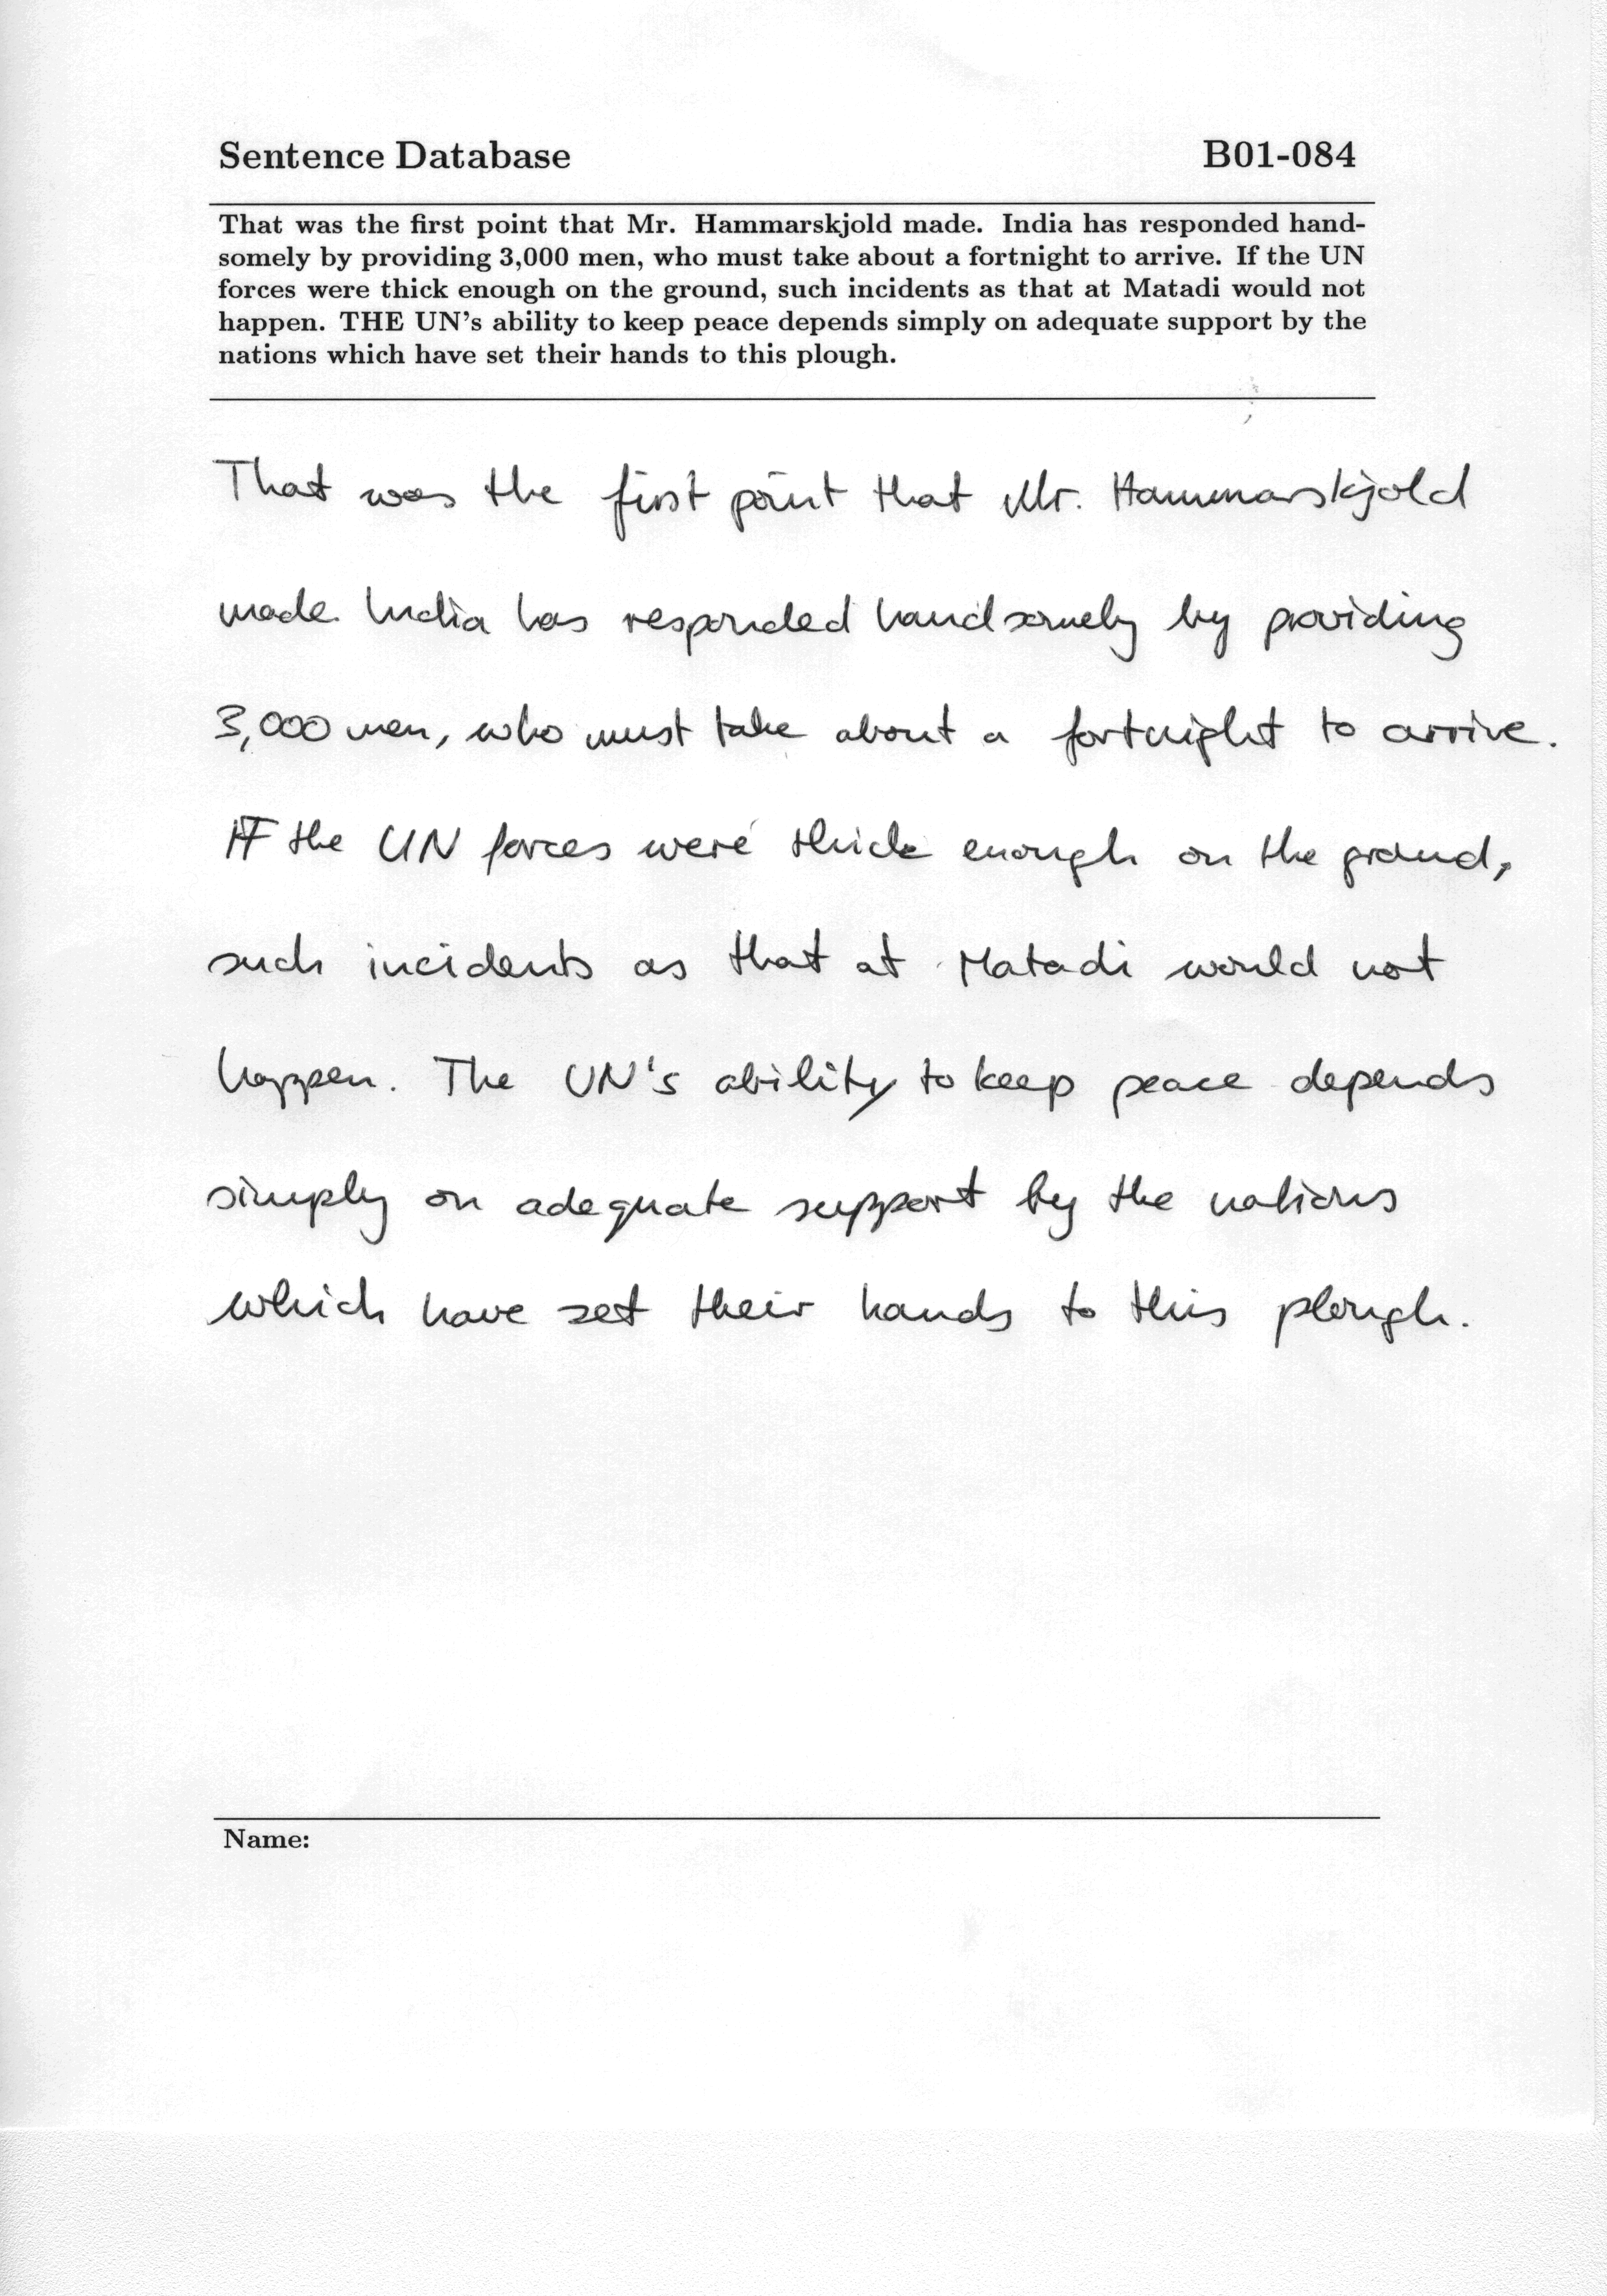 Sentence Database B01-084
That was the first point that Mr. Hammarskjold made. India has responded hand-
somely by providing 3,000 men, who must take about a fortnight to arrive. If the UN
forces were thick enough on the ground, such incidents as that at Matadi would not
happen. THE UN's ability to keep peace depends simply on adequate support by the
nations which have set their hands to this plough.
That was the first point that Mr. Hammarskjold
made. India has responded handsomely by providing
3,000 men, who must take about a fortnight to arrive.
IF the UN forces were thick enough on the ground,
such incidents as that at Matadi would not
happen. The UN's ability to keep peace depends
simply on adequate support by the nations
which have set their hands to this plough.
Name: